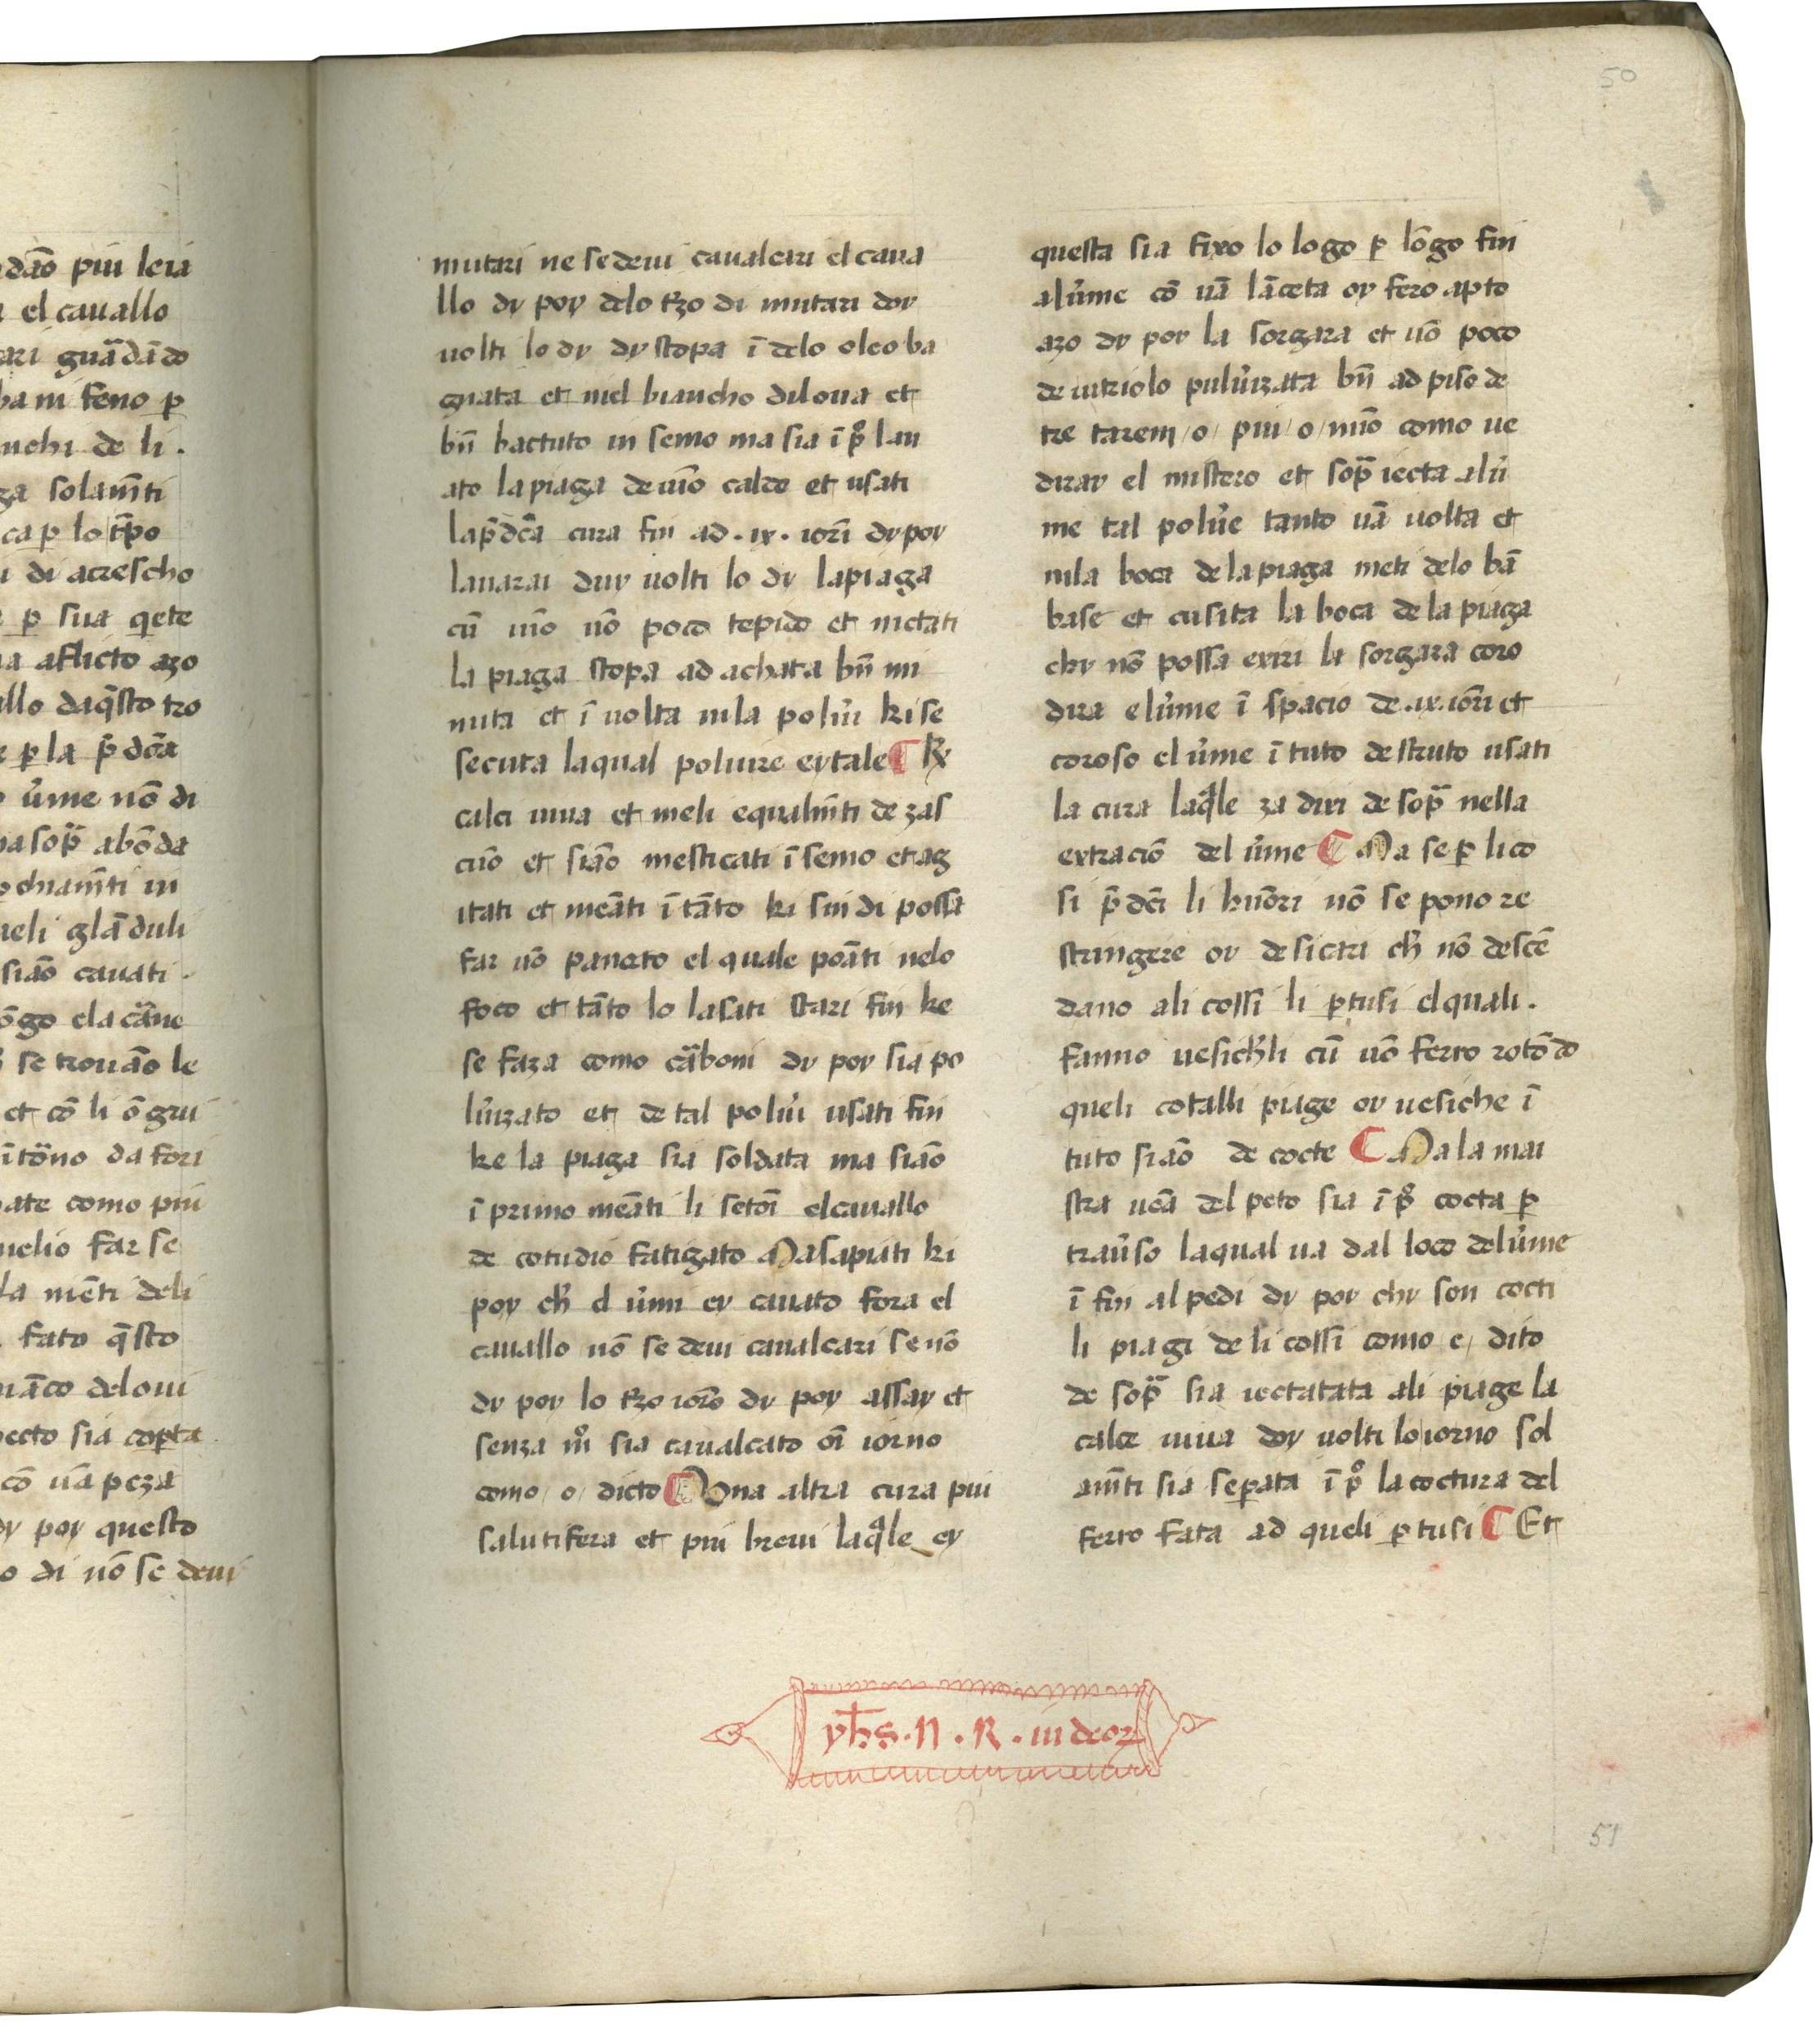 50
dāo piu leia
el cauallo
ari guādādo
ba ni feno ꝑ
nchi de li .
ga solam̄ti
ca ꝑ lo tp̄o
di acrescho
ꝑ sua qete
a aflicto azo
llo daq̄sto tro
e ꝑ la p̄dc̄a
u̓me nō di
a sop̄ abōda
chiam̄ti in
ueli glāduli
siāo cauati .
ōgo ela cār̄ne
se trouāo le
et cō li ōgrui
ītōno da fori
ate como piu
uelio far se
la mēti deli
fato q̄sto
āco deloui
ecto sia coꝑta
cō uā peza
dy poy questo
o di nō se deui
mutari ne se deui caualcari el caua
llo dy poy delo t̓zo di mutari doy
uolti lo dy dy stopa ī delo oleo ba
gnata et nel biancho diloua et
bn̄ bactuto in semo ma sia ī p̊ lau
ato la piaga de uīo caldo et usati
la p̄dc̄a cura fin ad . ix . iorī dy poy
lauarai duy uolti lo dy la piaga
cū uīo uō poco tepido et mctati
la piaga stopa ad achata bn̄ mi
nuta et ī uolta nila polu̓i ki se
secuta laqual poluire ey tale ¶ ℞
calci uiua et meli equalm̄ti de zas
cūo et siāo mesticati ī semo et ag
itati et meāti ī tāto ki sin di possa
far uō paneto el quale poāti nelo
foco et tāto lo lasati stari fin ke
se faza como cāboni dy poy sia po
lu̓izato et de tal polu̓i usati fin
ke la piaga sia soldata ma siāo
ī primo meāti li setoī el cauallo
de cotudio fatigato Ma sapiati ki
poy ch̓ el u̓mi ey cauato fora el
cauallo nō se deui caualcari se nō
dy poy lo t̓zo iorō dy poy assay et
senza m̊ sia caualcato oī iorno
como / o / dicto ¶ Una altra cura piu
salutifera et piu breui laq̄le ey
questa sia fixo lo logo ꝑ lōgo fin
al u̓me cō uā lāceta oy fero apto
azo dy poy la sorgara et uō poco
de uitriolo pulu̓izata bn̄ ad piso de
tre tareni / o / piu / o / mīo como ue
diray el mistero et sop̄ iecta alu̓
me tal polu̓e tanto uā uolta et
nila boca de la piaga meti delo bā
base et cusita la boca de la piaga
chy nō possa exiri la sorgara coro
dira el u̓me ī spacio de .ix. iorī et
coroso el u̓me ī tuto destruto usati
la cura laq̄le za dixi de sop̄ nella
extraciō del u̓me ¶ Ma se ꝑ li co
si p̄dc̄i li huōri nō se pono re
stringere oy desicari ch̓ nō descē
dano ali cossī li ꝑtusi el quali .
fanno uesich̓li cū uō ferro rotōdo
queli cotalli piage oy uesiche ī
tuto siāo de cocte ¶ Ma la mai
stra ueā del peto sia ī p̊ cocta ꝑ
trau̓so laqual ua dal loco del u̓me
ī fin al pedi dy poy chy son cocti
li piagi de li cossī como e / dito
de sop̄ sia iectatata ali piage la
calce uiua doy uolti lo iorno sol
am̄ti sia seꝑata ī p̊ la coctura del
ferro fata ad queli ꝑtusi ¶ Et
yħs . N . R . iudeoꝝ
51